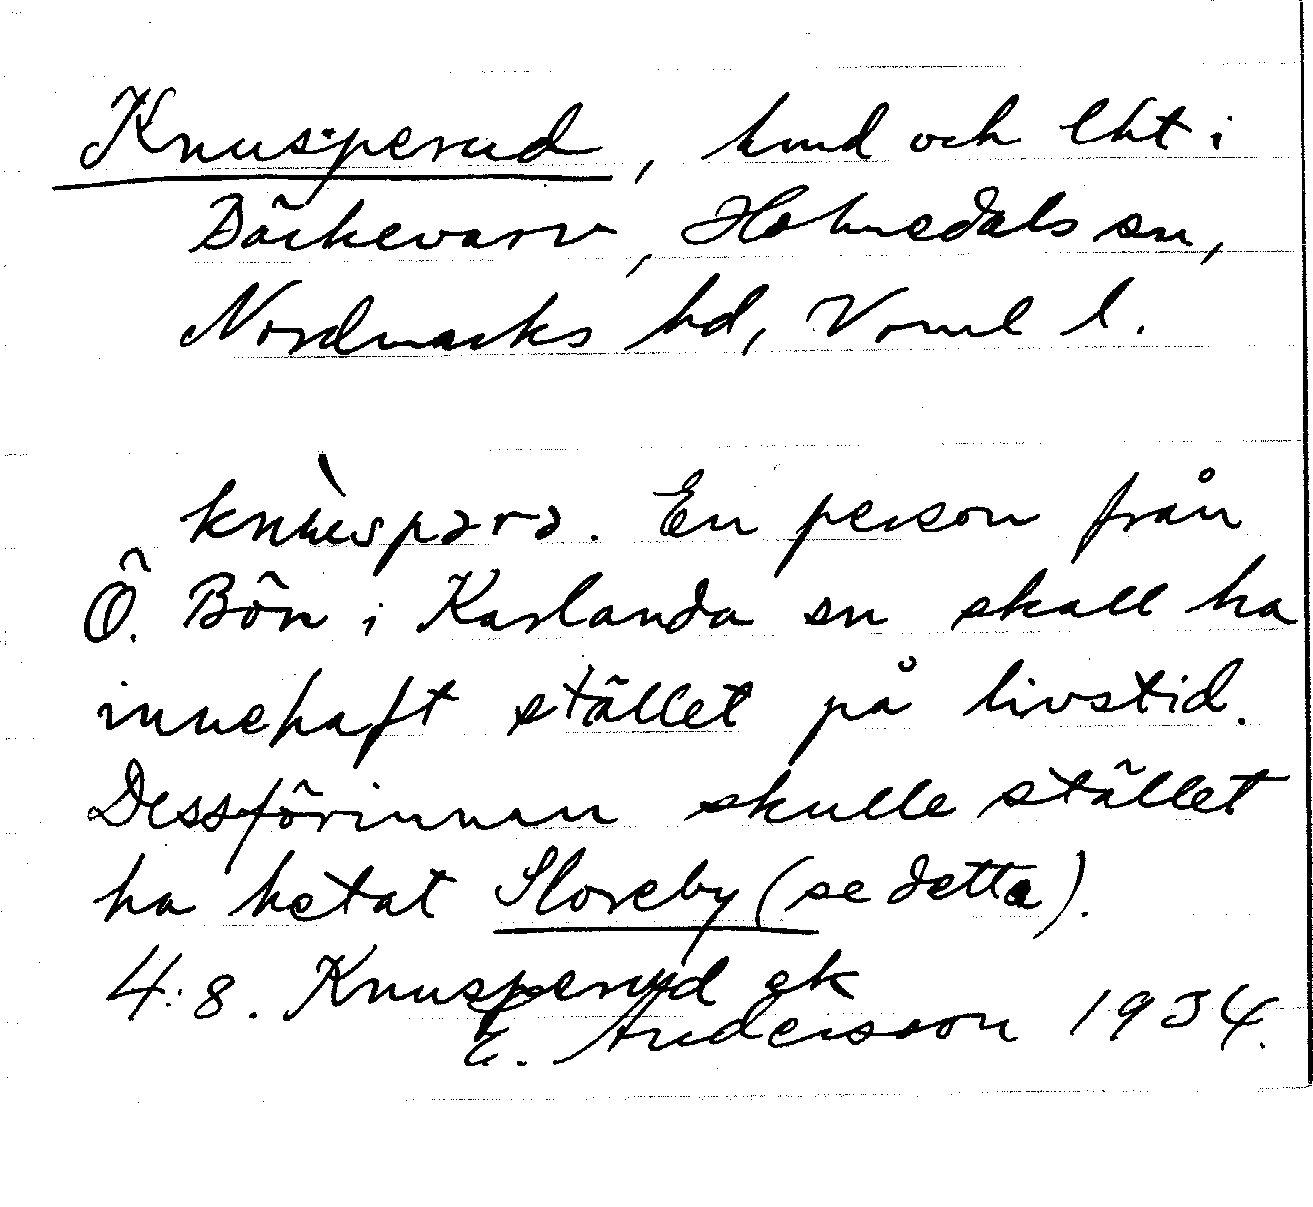 Knusperud, hmd och lht i
Bäckevarv, Holmedals sn,
Nordmarks hd, Värml l.
knùspərə. En person från
Ö. Bön i Karlanda sn skall ha
innehaft stället på livstid.
Dessförinnan skulle stället
ha hetat Sloreby (se detta).
4:8. Knusperud ek
E. Andersson 1934.